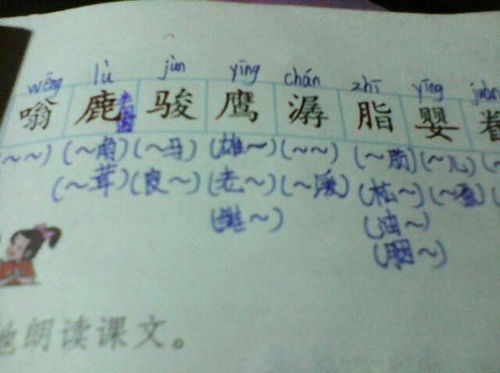 wēng lù jùn yīng chán zhī yīng juàn
嗡 鹿 骏 鹰 潺 脂 婴 眷
(~~) (~角) (~马) (雄~) (~~) (~肪) (~儿)
(~茸) (良~) (老~) (~湲) (松~)
(油~)
(胭~)
地朗读课文。